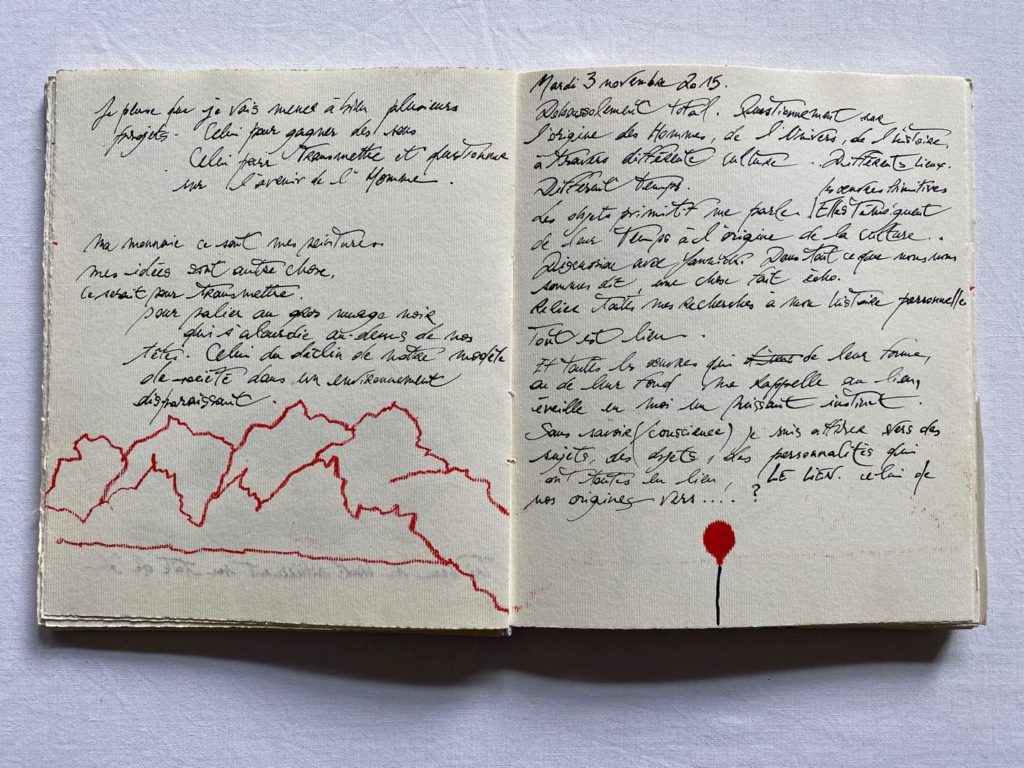 Je pense que je vais mener à bien plusieurs
projets. Celui pour gagner des sous
Celui pour transmettre et questionner
sur l'avenir de l'Homme.
Ma monnaie ce sont mes peintures
mes idées sont autre chose,
ce serait pour transmettre.
pour palier au gros nuage noir
qui s'alourdie au-dessus de nos
têtes. Celui du déclin de notre modèle
de société dans un environnement
disparaissant.
Mardi 3 novembre 2015.
total. Questionnement sur
l'origine des Hommes, de l'Univers, de l'histoire,
à travers différente culture. Différents lieux.
Différent temps.
Les objets primitif me parle. les oeuvres primitives
Elles témoignent
de leur temps à l'origine de la culture.
Discussion avec Dans tout ce que nous nous
sommes dit, une chose fait écho.
Relier toutes mes recherches a mon histoire personnelle
Tout est lien
Et toutes les oeuvres qui de leur forme,
ou de leur fond me rappelle au lien,
éveille en moi un puissant instinct.
Sans savoir (conscience) je suis attirée vers des
sujets, des objets, des personnalités qui
ont toutes un lien, LE LIEN. celui de
nos origines vers.... ?